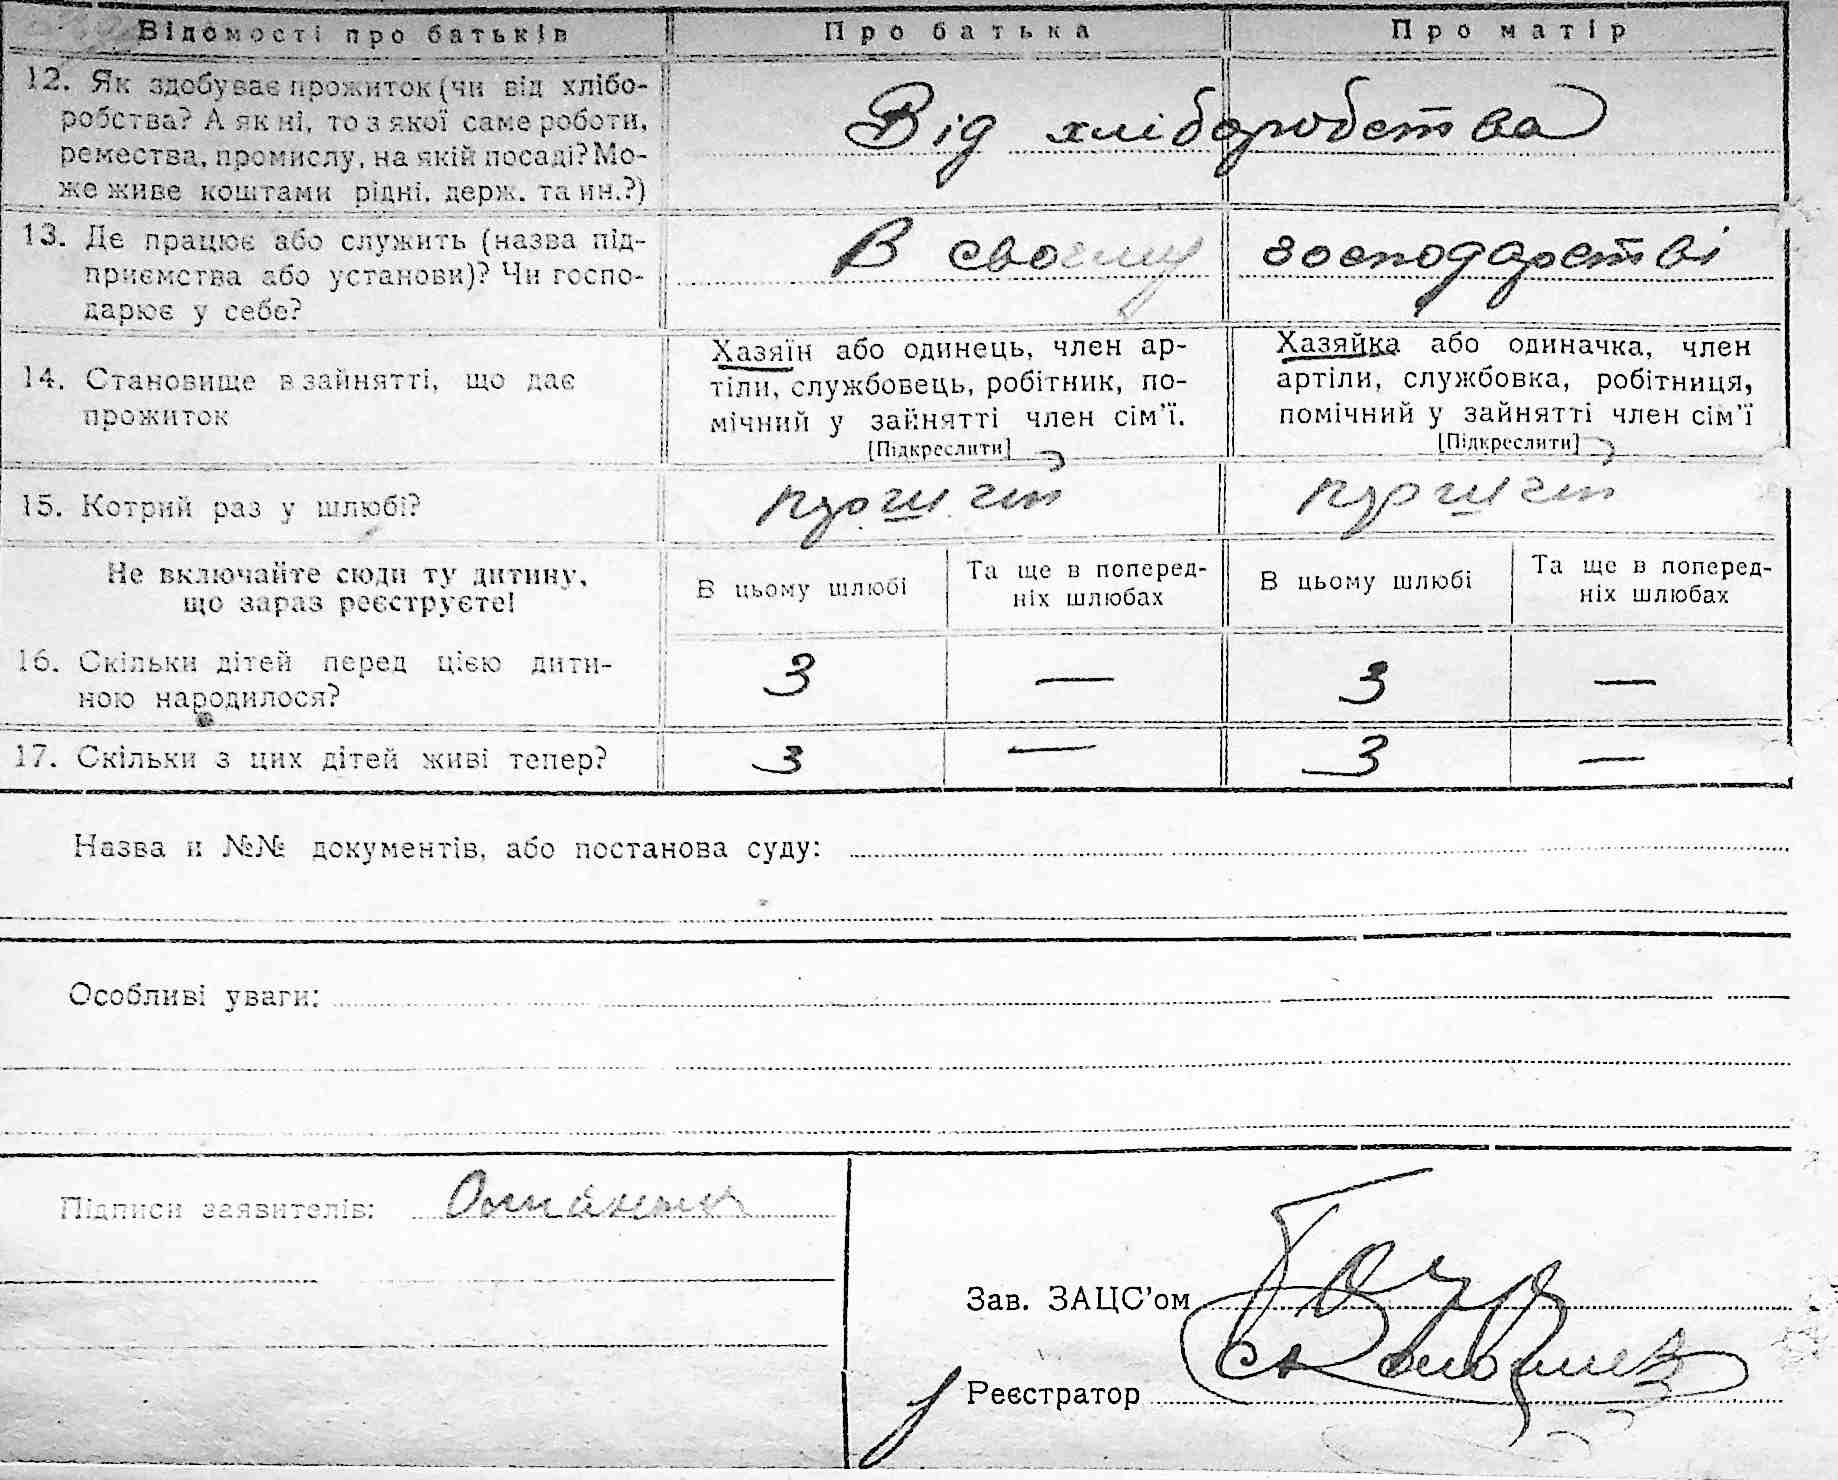 Відомості про батьків Про батька Про матір
12. Як здобуває прожиток (чи від хлібо-
робства? А як ні, то з якої саме роботи,
ремества, промислу, на якій посаді? Мо-
же живе коштами рідні, держ. та ин.?)
Від хліборобства
13. Де працює або служить (назва під-
приємства або установи)? Чи госпо-
дарює у себе?
В своєму господарстві
14. Становище в зайнятті, що дає
прожиток
Хазяїн або одинець, член ар-
тіли, службовець, робітник, по-
мічний у зайнятті член сім'ї.
[Підкреслити]
Хазяйка або одиначка, член
артіли, службовка, робітниця,
помічний у зайнятті член сім'ї
[Підкреслити]
15. Котрий раз у шлюбі?
Не включайте сюди ту дитину,
що зараз реєструєте!
В цьому шлюбі
Та ще в поперед-
ніх шлюбах
В цьому шлюбі
Та ще в поперед-
ніх шлюбах
16. Скільки дітей перед цією дити-
ною народилося?
3 — 3 —
17. Скільки з цих дітей живі тепер? 3 — 3 —
Назва и №№ документів, або постанова суду:
Особливі уваги:
Підписи заявителів:
Зав. ЗАЦС'ом
Реєстратор